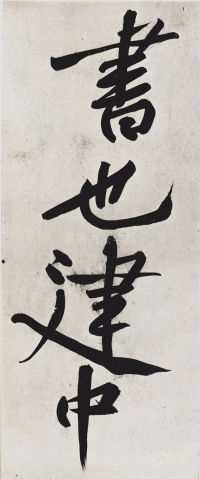 書也建中